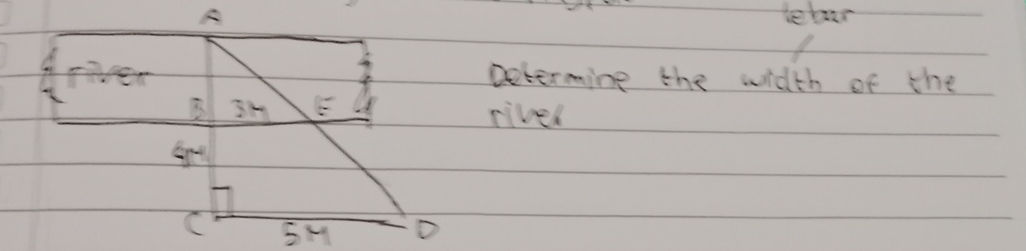 lebar
A
river
Determine the width of the
B 3M E
river
4M
C
D
5M